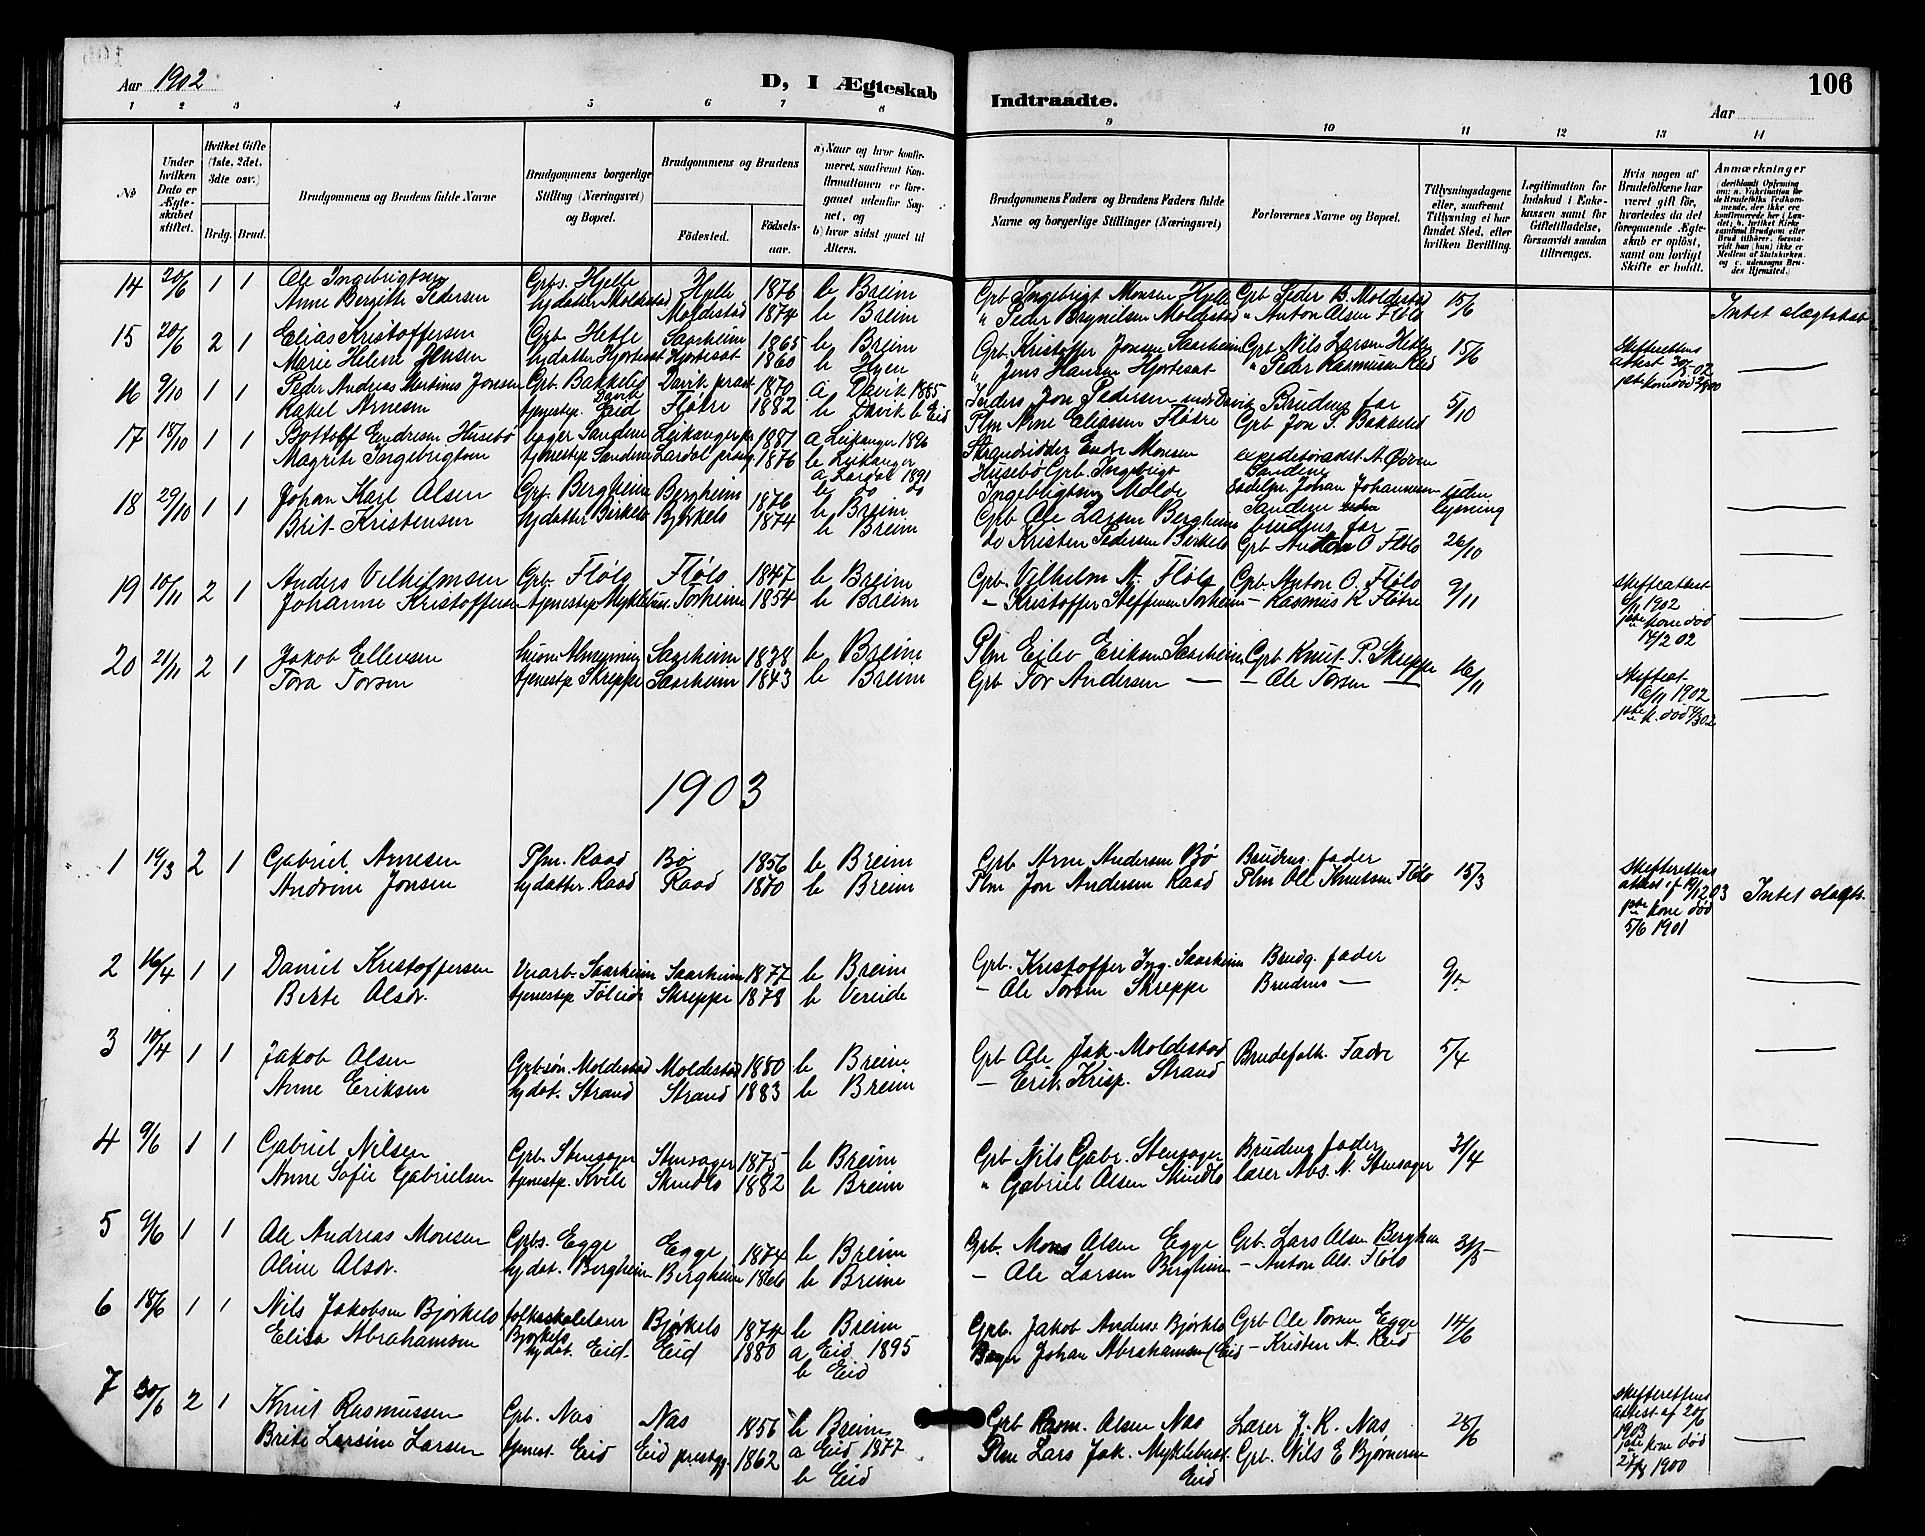 Aar 1902
D, I Ægteskab Indtraadte.
106
Aar
1 2 3 4 5 6 7 8 9 10 11 12 13 14
No
Under hvilken Dato er Ægteskabet stiftet.
Hvilket Gifte (1ste, 2det, 3die osv.)
Brdg. Brud.
Brudgommens og Brudens fulde Navne
Brudgommens borgerlige Stilling (Næringsvei) og Bopæl.
Brudgommens og Brudens
Fødested.
Fødselsaar.
a) Naar og hvor konfirmeret, saafremt Konfirmationen er foregaaet udenfor Sognet, og
b) hvor sidst gaaet til Alters.
Brudgommens Faders og Brudens Faders fulde Navne og borgerlige Stillinger (Næringsvei)
Forlovernes Navne og Bopæl.
Tillysningsdagene eller, saafremt Tillysning ei har fundet Sted, efter hvilken Bevilling.
Legitimation for Indskud i Enkekassen samt for Giftetilladelse, forsaavidt saadan tiltrænges.
Hvis nogen af Brudefolkene har været gift før, hvorledes da det foregaaende Ægteskab er opløst, samt om lovligt Skifte er holdt.
Anmærkninger
14 20/6 1 1 Ole Ingebrigtsen Grbs. Hjelle Hjelle 1876 b Breim Grb Ingebrigt Monsen Hjelle Grb Peder B. Moldestad 15/6 Intet slægtskab
Anne Bergithe Pedersen hjdatter Moldestad Moldestad 1874 b Breim " Peder Brynelsen Moldestad " Anton Olsen Flølo
15 20/6 2 1 Elias Kristoffersen Grb. Hetle Saarheim 1865 b Breim Grb. Kristoffer Jonsen Saarheim Grb Nils Larsen Hetle 15/6 Skifterettens attest 30/5-02
Marie Helene Jensen hjdatter Hjorteset Hjorteset 1860 b Hyen " Jens Hansen Hjorteset " Peder Rasmussen Reed 1ste kone død
16 9/10 1 1 Peder Andreas Martinus Jonsen Grb. Bakkelid Davik prest 1870 a Davik 1885 Inders Jon Pedersen Davik Brudens far 5/10
Rakel Arnesen tjenestep. Eid Fløtre 1882 b Davik b Eid Plm Arne Eliassen Fløtre Grb Jon P. Bakkelid
17 18/10 1 1 Bottolf Endresen Husebø bager Sandene Leikanger pr 1881 a Leikanger 1896 Strandsidder Endre Monsen
Magrete Ingebrigtsen tjenestep. Sandene Lærdal prestg. 1876 b Leikanger Husebø Grb. Ingebrigt Sandene
a Lærdal 1891
b do do Ingebrigtsen Molde Johan Johannesen Sandene uden lysning
18 29/10 1 1 Johan Karl Olsen Grb. Bergheim Bergheim 1876 b Breim Grb Ole Larsen Bergheim brudens far 26/10
Brit Kristensen hjdatter Birkelo Bjørkelo 1874 b Breim do Kristen Pedersen Birkelo Grb Anton O Flølo
19 10/11 2 1 Anders Vilhelmsen Grb. Flølo Flølo 1847 b Breim Grb. Vilhelm A. Flølo Grb. Anton O. Flølo 9/11 skifteattest 6/11 1902
Johanne Kristoffersen tjenestep. Myklebust. Torheim 1854 b Breim - Kristoffer Steffensen Torheim - Rasmus K Fløtre 1ste kone død 14/2 02
20 21/11 2 1 Jakob Ellevsen Saarheim 1838 b Breim Plm Eilev Eriksen Saarheim Grb Knut P. Skreppe 16/11 Skifteat- 6/11 1902
Tora Torsen tjenestep Skreppe Saarheim 1843 b Breim Grb Tor Andersen — - Ole Torsen — 1ste k. død 6/3 02
1903
1 19/3 2 1 Gabriel Arnesen Plm. Raad Bø 1856 b Breim Grb Arne Andersen Bø Brudens fader 15/3 Skifterettens attest af 1903 Intet slægts.
Andrine Jonsen hjdatter Raad Raad 1870 b Breim Plm Jon Andersen Raad Plm Ole Knutsen Flølo 1ste kone død 5/6 1901
2 16/4 1 1 Daniel Kristoffersen Saarheim Saarheim 1877 b Breim Grb. Kristoffer Ing. Saarheim Brudg. fader
Birte Olsdr. tjenestep Skreppe 1878 b Vereide - Ole Torsen Skreppe Brudens —
3 10/4 1 1 Jakob Olsen Grbsøn. Moldestad Moldestad 1880 b Breim Grb Ole Jak. Moldestad Brudefolk. Fadre 5/4
Anne Eriksen hjdat. Strand Strand 1883 b Breim - Erik Krisp. Strand
4 9/6 1 1 Gabriel Nilsen Grb. Stensager Stensager 1875 b Breim Grb Nils Gabr. Stensager Brudens fader
Anne Sofie Gabrielsen tjenestp. Kvile Skindlo 1882 b Breim " Gabriel Olsen Skindlo lærer Abs. N. Stensager
5 6/6 1 1 Ole Andreas Monsen Grbs. Egge Egge 1874 b Breim Grb. Mons Olsen Egge Grb. Lars Olsen Bergheim 31/5
Oline Olsdr. hjdat. Bergheim Bergheim 1866 b Breim - Ole Larsen Bergheim - Anton Ols. Flølo
6 18/6 1 1 Nils Jakobsen Bjørkelo folkeskolelærer Bjørkelo Bjørkelo 1874 b Breim Grb. Jakob Anders. Bjørkelo Grb Ole Torsen Egge 14/6
Elisa Abrahamsen hjdat. Eid Eid 1880 a Eid 1895 Bager Johan Abrahamsen (Eid - Kristen A. Reed
b Eid
7 30/6 2 1 Knut Rasmussen Grb. Nas Nas 1856 b Breim Grb Rasm. Olsen Nas Lærer J. R. Nas 28/6 skifterettens attest af 20/6 1903
Brite Larsine Larsen tjenest. Eid Eid prestgj. 1862 a Eid 1877 Plm Lars Jak. Myklebust. Eid Grb. Nils E Bjørnereim 1ste kone død 1900
b Eid